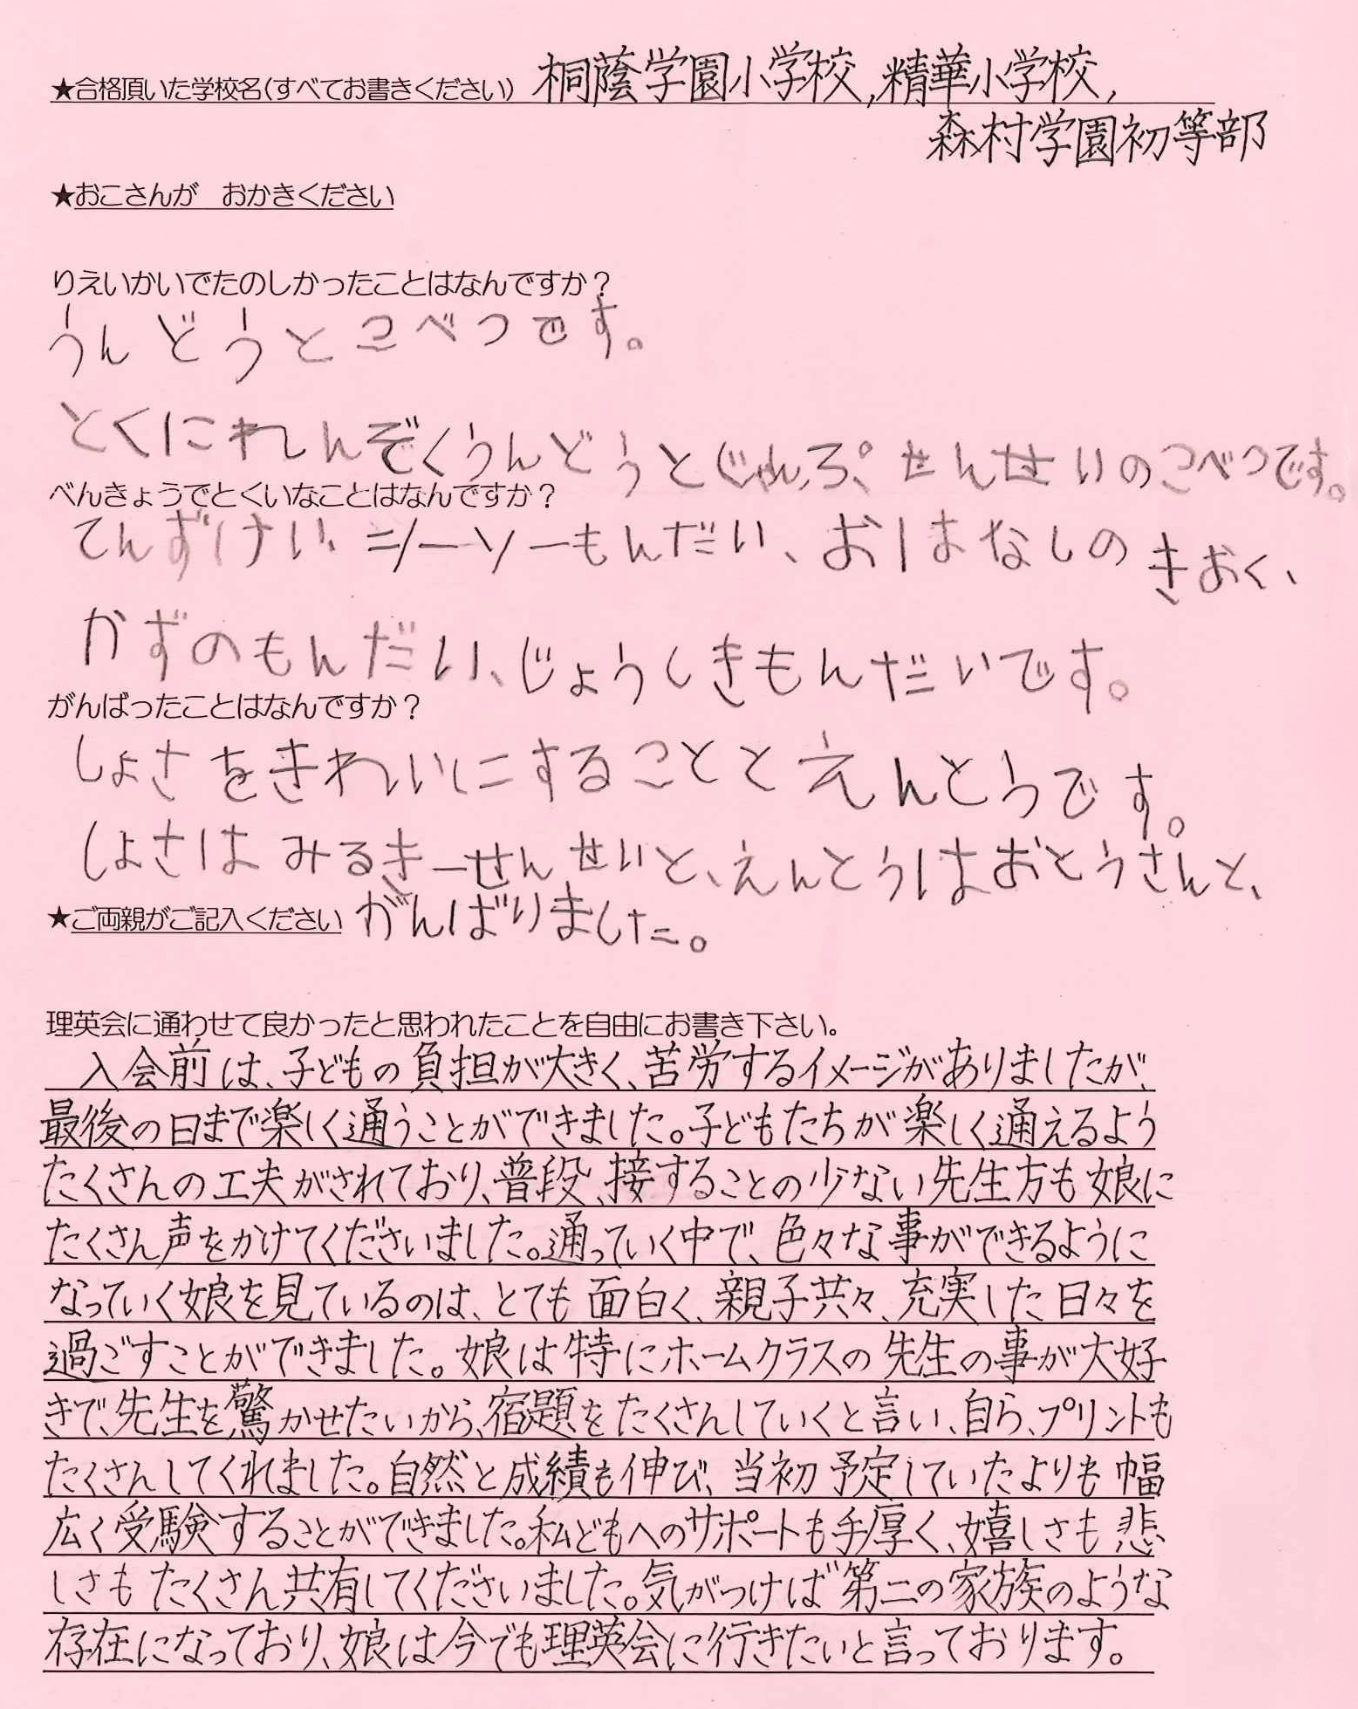 ★合格頂いた学校名(すべてお書きください) 桐蔭学園小学校, 精華小学校,
森村学園初等部
★おこさんが おかきください
りえいかいでたのしかったことはなんですか?
うんどうとこべつです。
とくにれんぞくうんどうとじゃんぷ、せんせいのこべつです。
べんきょうでとくいなことはなんですか?
てんずけい、シーソーもんだい、おはなしのきおく、
かずのもんだい、じょうしきもんだいです。
がんばったことはなんですか?
しょさをきれいにすることとえんとうです。
しょさはみるきーせんせいと、えんとうはおとうさんと、
★ご両親がご記入ください がんばりました。
理英会に通わせて良かったと思われたことを自由にお書き下さい。
入会前は、子どもの負担が大きく、苦労するイメージがありましたが、
最後の日まで楽しく通うことができました。子どもたちが楽しく通えるよう
たくさんの工夫がされており、普段、接することの少ない先生方も娘に
たくさん声をかけてくださいました。通っていく中で、色々な事ができるように
なっていく娘を見ているのは、とても面白く、親子共々、充実した日々を
過ごすことができました。娘は特にホームクラスの先生の事が大好
きで、先生を驚かせたいから、宿題をたくさんしていくと言い、自ら、プリントも
たくさんしてくれました。自然と成績も伸び、当初予定していたよりも幅
広く受験することができました。私どもへのサポートも手厚く、嬉しさも悲
しさもたくさん共有してくださいました。気がつけば第二の家族のような
存在になっており、娘は今でも理英会に行きたいと言っております。